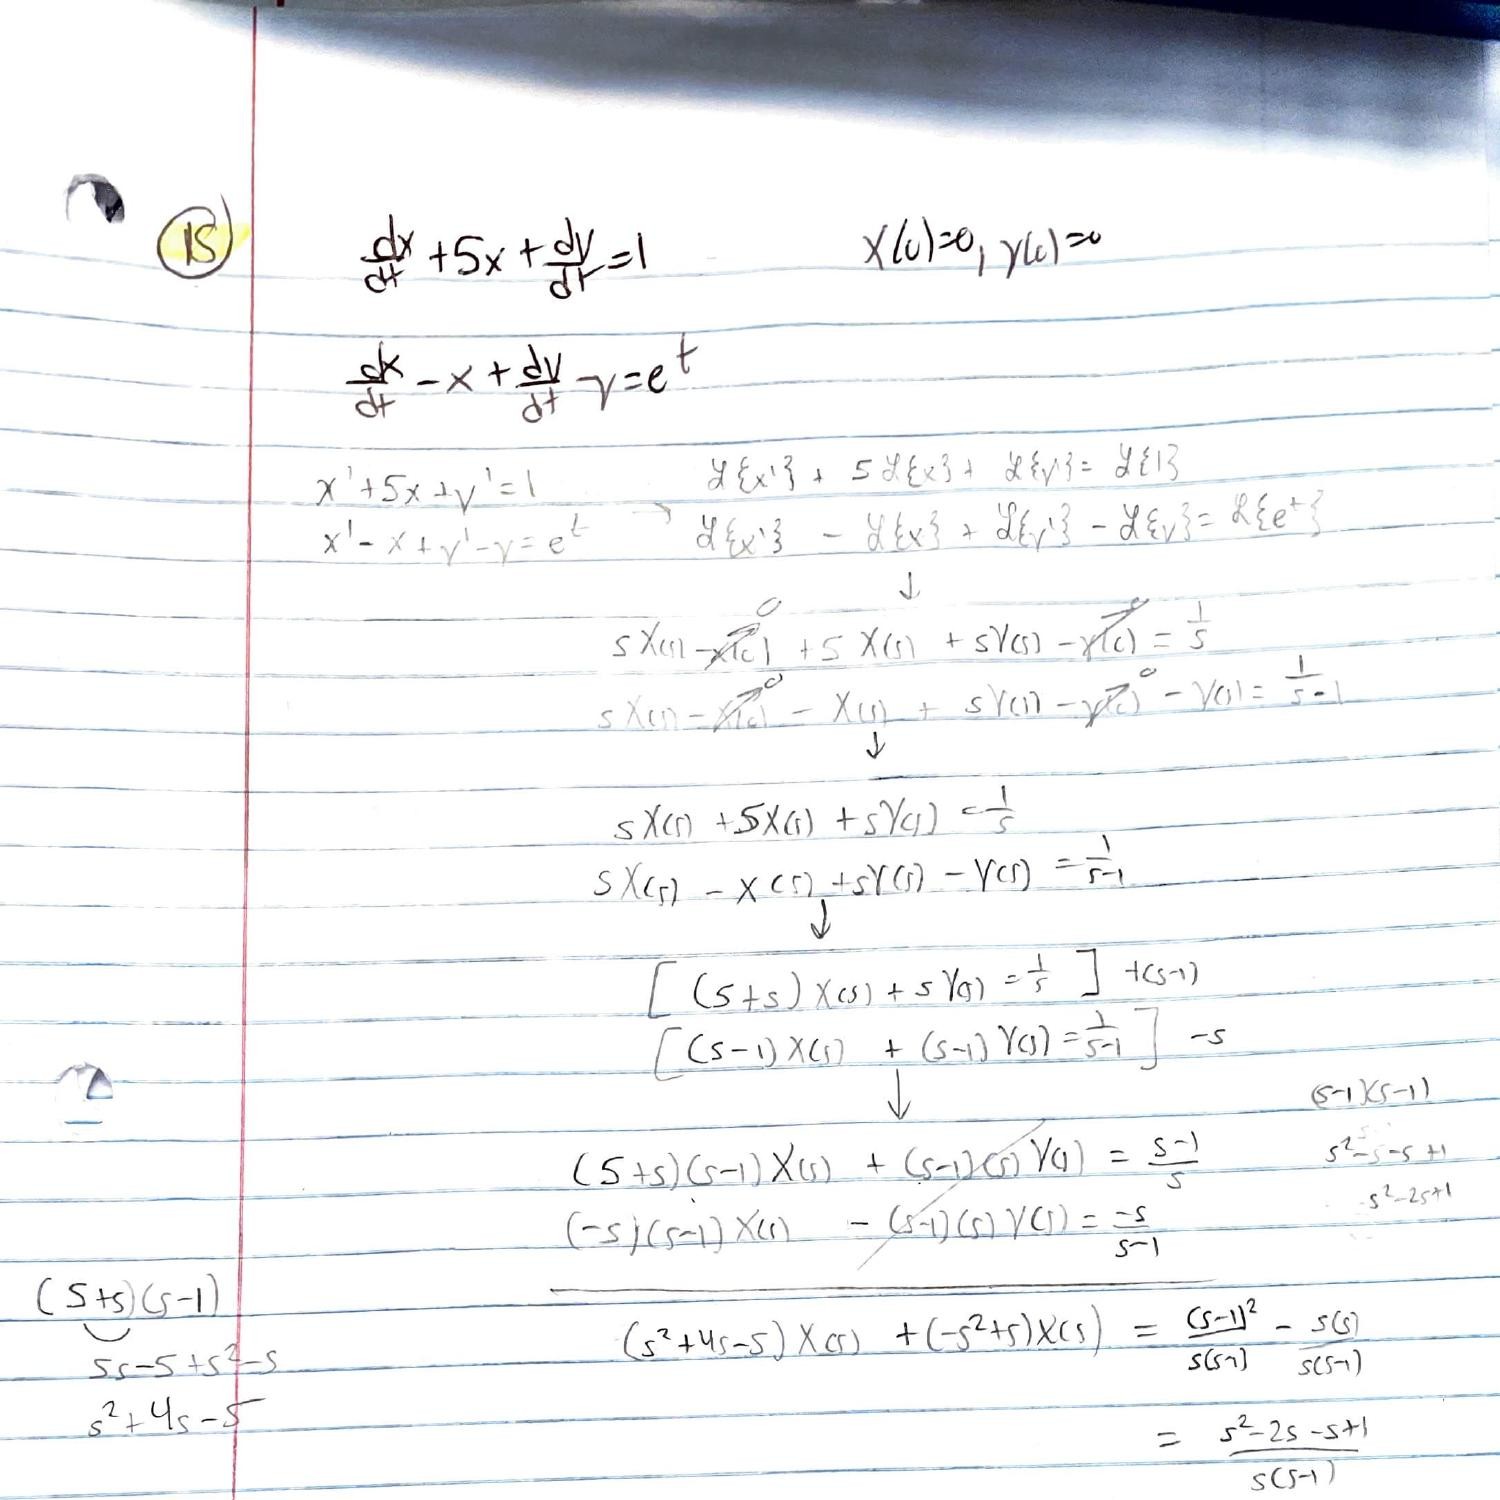 15
dx/dt + 5x + dy/dt = 1    x(0)=0, y(0)=0
dx/dt - x + dy/dt - y = e^t
x' + 5x + y' = 1    ℒ{x'} + 5ℒ{x} + ℒ{y'} = ℒ{1}
x' - x + y' - y = e^t → ℒ{x'} - ℒ{x} + ℒ{y'} - ℒ{y} = ℒ{e^t}
↓
sX(s) - x(0)→0 + 5X(s) + sY(s) - y(0)→0 = 1/s
sX(s) - x(0)→0 - X(s) + sY(s) - y(0)→0 - Y(s) = 1/(s-1)
↓
sX(s) + 5X(s) + sY(s) = 1/s
sX(s) - X(s) + sY(s) - Y(s) = 1/(s-1)
↓
[(5+s)X(s) + sY(s) = 1/s] +(s-1)
[(s-1)X(s) + (s-1)Y(s) = 1/(s-1)] -s
↓
(s-1)(s-1)
(5+s)(s-1)X(s) + (s-1)(s)Y(s) = (s-1)/s
s²-s-s+1
s²-2s+1
(-s)(s-1)X(s) - (s-1)(s)Y(s) = -s/(s-1)
(5+s)(s-1)
5s-5+s²-s
s²+4s-5
(s²+4s-5)X(s) + (-s²+s)X(s) = (s-1)²/s(s-1) - s(s)/s(s-1)
= (s²-2s-s+1)/s(s-1)